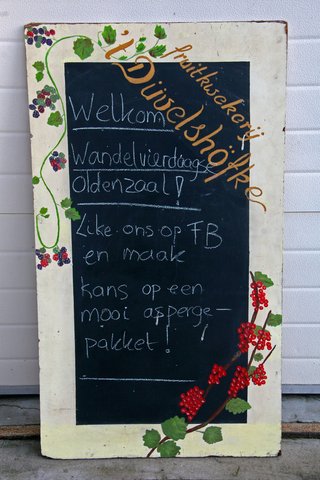 fruitkwekerij
't Düvelshöfke
Welkom
Wandelvierdaagse
Oldenzaal!
Like ons op FB
en maak
kans op een
mooi asperge-
pakket!